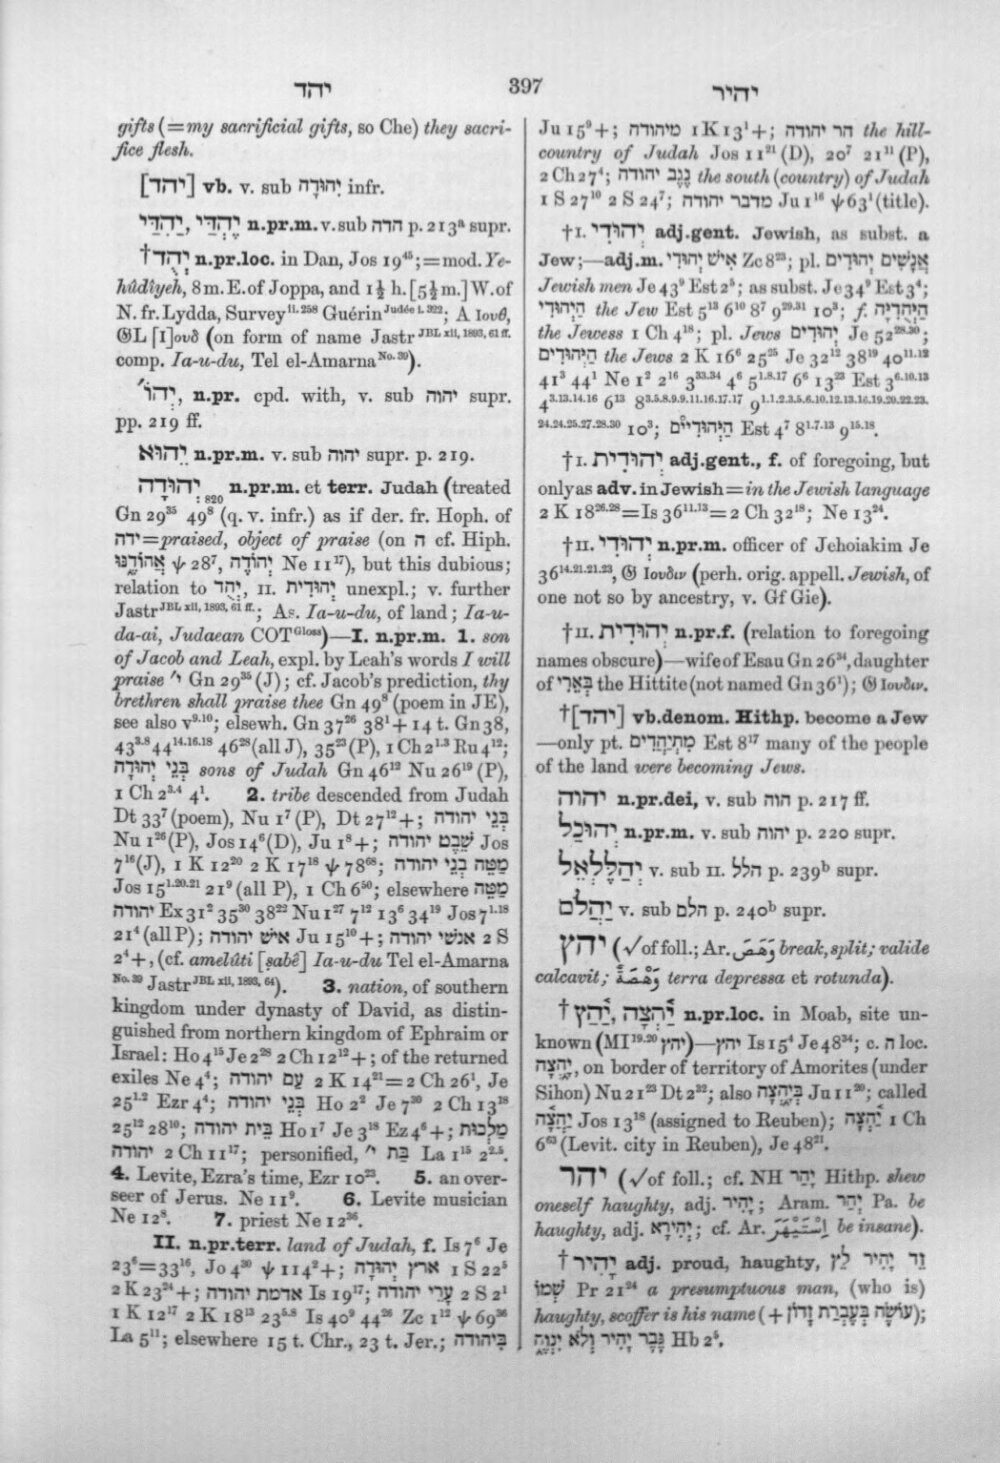 יהד
397
יהיר
gifts (=my sacrificial gifts, so Che) they sacri-
fice flesh.
[יהד] vb. v. sub יְהוּדָה infr.
יֶהְדַּי, יַהְדַּי n.pr.m. v. sub הדה p. 213ᵃ supr.
†יְהֻד n.pr.loc. in Dan, Jos 19⁴⁵; = mod. Ye-
hûdîyeh, 8 m. E. of Joppa, and 1½ h. [5½ m.] W. of
N. fr. Lydda, Survey ii. 258 Guérin Judée i. 322; A Ιουθ,
𝔊L [Ι]ουδ (on form of name Jastr JBL xii, 1893, 61 ff.
comp. Ia-u-du, Tel el-Amarna No. 39).
יְהוֹ׳, n.pr. cpd. with, v. sub יהוה supr.
pp. 219 ff.
יֵהוּא n.pr.m. v. sub יהוה supr. p. 219.
יְהוּדָה 820 n.pr.m. et terr. Judah (treated
Gn 29³⁵ 49⁸ (q. v. infr.) as if der. fr. Hoph. of
ידה=praised, object of praise (on ה cf. Hiph.
אֲהוֹדֶנּוּ ψ 28⁷, יְהוֹדֶה Ne 11¹⁷), but this dubious;
relation to יְהֻד, II. יְהוּדִית unexpl.; v. further
Jastr JBL xii, 1893, 61 ff.; As. Ia-u-du, of land; Ia-u-
da-ai, Judaean COT Gloss)—I. n.pr.m. 1. son
of Jacob and Leah, expl. by Leah's words I will
praise י׳ Gn 29³⁵ (J); cf. Jacob's prediction, thy
brethren shall praise thee Gn 49⁸ (poem in JE),
see also v⁹·¹⁰; elsewh. Gn 37²⁶ 38¹ + 14 t. Gn 38,
43³·⁸ 44¹⁴·¹⁶·¹⁸ 46²⁸ (all J), 35²³ (P), 1 Ch 2¹·³ Ru 4¹²;
בְּנֵי יְהוּדָה sons of Judah Gn 46¹² Nu 26¹⁹ (P),
1 Ch 2³·⁴ 4¹. 2. tribe descended from Judah
Dt 33⁷ (poem), Nu 1⁷ (P), Dt 27¹² +; בְּנֵי יהודה
Nu 1²⁶ (P), Jos 14⁶ (D), Ju 1⁸ +; שֵׁבֶט יהודה Jos
7¹⁶ (J), 1 K 12²⁰ 2 K 17¹⁸ ψ 78⁶⁸; מַטֵּה בְנֵי יהודה
Jos 15¹·²⁰·²¹ 21⁹ (all P), 1 Ch 6⁵⁰; elsewhere מַטֵּה
יהודה Ex 31² 35³⁰ 38²² Nu 1²⁷ 7¹² 13⁶ 34¹⁹ Jos 7¹·¹⁸
21⁴ (all P); אִישׁ יהודה Ju 15¹⁰ +; אנשי יהודה 2 S
2⁴ +, (cf. amelûti [ṣabê] Ia-u-du Tel el-Amarna
No. 39 Jastr JBL xii, 1893, 64). 3. nation, of southern
kingdom under dynasty of David, as distin-
guished from northern kingdom of Ephraim or
Israel: Ho 4¹⁵ Je 2²⁸ 2 Ch 12¹² +; of the returned
exiles Ne 4⁴; עַם יהודה 2 K 14²¹=2 Ch 26¹, Je
25¹·² Ezr 4⁴; בְּנֵי יהודה Ho 2² Je 7³⁰ 2 Ch 13¹⁸
25¹² 28¹⁰; בֵּית יהודה Ho 1⁷ Je 3¹⁸ Ez 4⁶ +; מַלְכוּת
יהודה 2 Ch 11¹⁷; personified, בַּת י׳ La 1¹⁵ 2²·⁵.
4. Levite, Ezra's time, Ezr 10²³. 5. an over-
seer of Jerus. Ne 11⁹. 6. Levite musician
Ne 12⁸. 7. priest Ne 12³⁶.
II. n.pr.terr. land of Judah, f. Is 7⁶ Je
23⁶=33¹⁶, Jo 4²⁰ ψ 114² +; ארץ יְהוּדָה 1 S 22⁵
2 K 23²⁴ +; אדמת יהודה Is 19¹⁷; עָרֵי יהודה 2 S 2¹
1 K 12¹⁷ 2 K 18¹³ 23⁵·⁸ Is 40⁹ 44²⁶ Zc 1¹² ψ 69³⁶
La 5¹¹; elsewhere 15 t. Chr., 23 t. Jer.; בִּיהודה
Ju 15⁹ +; מיהודה 1 K 13¹ +; הר יהודה the hill-
country of Judah Jos 11²¹ (D), 20⁷ 21¹¹ (P),
2 Ch 27⁴; נֶגֶב יהודה the south (country) of Judah
1 S 27¹⁰ 2 S 24⁷; מדבר יהודה Ju 1¹⁶ ψ 63¹ (title).
†I. יְהוּדִי adj.gent. Jewish, as subst. a
Jew;—adj.m. אִישׁ יְהוּדִי Zc 8²³; pl. אֲנָשִׁים יְהוּדִים
Jewish men Je 43⁹ Est 2⁵; as subst. Je 34⁹ Est 3⁴;
הַיְּהוּדִי the Jew Est 5¹³ 6¹⁰ 8⁷ 9²⁹·³¹ 10³; f. הַיְהֻדִיָּה
the Jewess 1 Ch 4¹⁸; pl. Jews יְהוּדִים Je 52²⁸·³⁰;
הַיְּהוּדִים the Jews 2 K 16⁶ 25²⁵ Je 32¹² 38¹⁹ 40¹¹·¹²
41³ 44¹ Ne 1² 2¹⁶ 3³³·³⁴ 4⁶ 5¹·⁸·¹⁷ 6⁶ 13²³ Est 3⁶·¹⁰·¹³
4³·¹³·¹⁴·¹⁶ 6¹³ 8³·⁵·⁸·⁹·⁹·¹¹·¹⁶·¹⁷·¹⁷ 9¹·¹·²·³·⁵·⁶·¹⁰·¹²·¹³·¹⁶·¹⁹·²⁰·²²·²³·
²⁴·²⁴·²⁵·²⁷·²⁸·³⁰ 10³; הַיְּהוּדִיִּים Est 4⁷ 8¹·⁷·¹³ 9¹⁵·¹⁸.
†I. יְהוּדִית adj.gent., f. of foregoing, but
only as adv. in Jewish=in the Jewish language
2 K 18²⁶·²⁸=Is 36¹¹·¹³=2 Ch 32¹⁸; Ne 13²⁴.
†II. יְהוּדִי n.pr.m. officer of Jehoiakim Je
36¹⁴·²¹·²¹·²³, 𝔊 Ιουδιν (perh. orig. appell. Jewish, of
one not so by ancestry, v. Gf Gie).
†II. יְהוּדִית n.pr.f. (relation to foregoing
names obscure)—wife of Esau Gn 26³⁴, daughter
of בְּאֵרִי the Hittite (not named Gn 36¹); 𝔊 Ιουδιν.
†[יהד] vb.denom. Hithp. become a Jew
—only pt. מִתְיַהֲדִים Est 8¹⁷ many of the people
of the land were becoming Jews.
יהוה n.pr.dei, v. sub הוה p. 217 ff.
יְהוּכַל n.pr.m. v. sub יהוה p. 220 supr.
יְהַלֶּלְאֵל v. sub II. הלל p. 239ᵇ supr.
יַהֲלֹם v. sub הלם p. 240ᵇ supr.
יהץ (√ of foll.; Ar. وَهَصَ break, split; valide
calcavit; وَهْصَةٌ terra depressa et rotunda).
†יַהְצָה, יַהַץ n.pr.loc. in Moab, site un-
known (MI¹⁹·²⁰ יהץ)—יהץ Is 15⁴ Je 48³⁴; c. ה loc.
יָהְצָה, on border of territory of Amorites (under
Sihon) Nu 21²³ Dt 2³²; also בְּיַהְצָה Ju 11²⁰; called
יַהְצָה Jos 13¹⁸ (assigned to Reuben); יַהְצָה 1 Ch
6⁶³ (Levit. city in Reuben), Je 48²¹.
יהר (√ of foll.; cf. NH יָהַר Hithp. shew
oneself haughty, adj. יָהִיר; Aram. יְהַר Pa. be
haughty, adj. יְהִירָא; cf. Ar. اِسْتَيْهَرَ be insane).
†יָהִיר adj. proud, haughty, זֵד יָהִיר לֵץ
שְׁמוֹ Pr 21²⁴ a presumptuous man, (who is)
haughty, scoffer is his name (+עוֹשֶׂה בְּעֶבְרַת זָדוֹן);
גֶּבֶר יָהִיר וְלֹא יִנְוֶה Hb 2⁵.